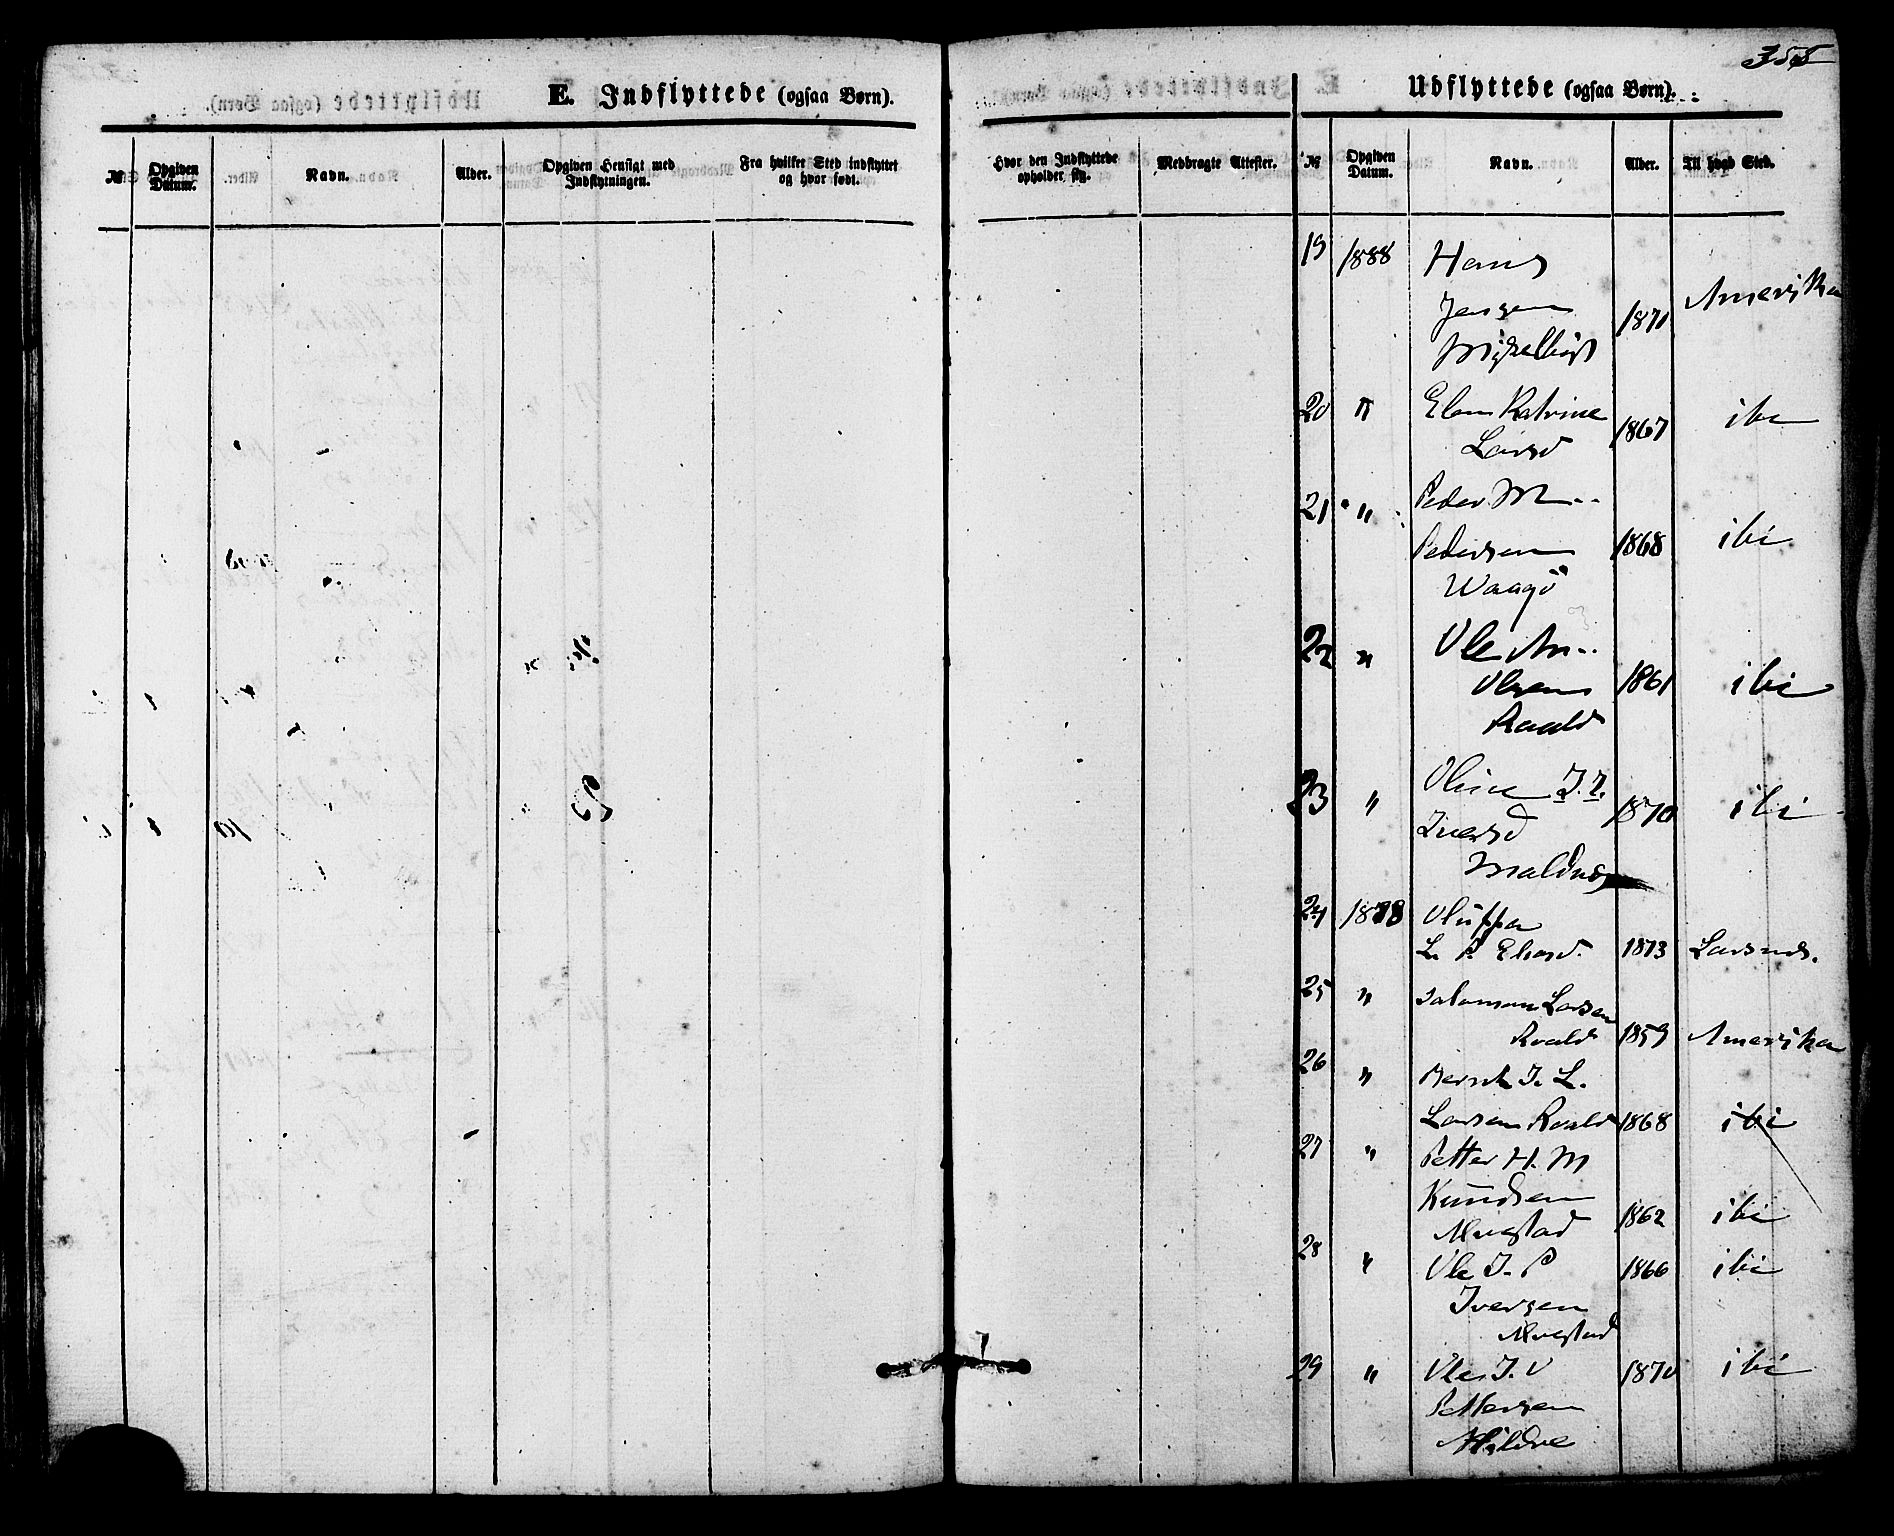 355
E. Indflyttede (ogsaa Børn).
Udflyttede (ogsaa Børn).
№ Opgiven Datum. Navn. Alder. Opgiven Hensigt med Indflytningen. Fra hvilket Sted indflyttet og hvor født.
Hvor den Indflyttede opholder sig. Medbragte Attester. № Opgiven Datum. Navn. Alder. Til hvad Sted.
19 1888 Hans
Jensen 1871 Amerika
20 " Elen Katrine 1867 ibi
Larsd
21 " Peder M
Pedersen 1868 ibi
Waagö
22 " Ole An
Olsen 1861 ibi
Roald
23 " Oline J. I. 1870 ibi
Iversd
24 1888
L. P. Eliasd. 1873 Larsnes.
25 " Salomon Larsen
Roald 1859 Amerika
26 " Bernt I. L.
Larsen Roald 1868 ibi
27 " Petter H. M
Knudsen 1862 ibi
Alvestad
28 " Ole I. P 1866 ibi
Iversen
Alvestad
29 " Ole I. O 1870 ibi
Pettersen